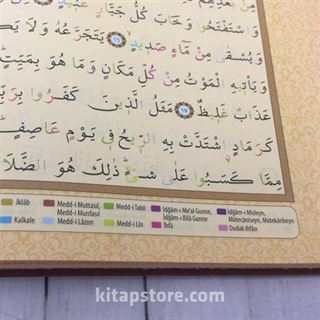 وَاسْتَفْتَحُوا وَخَابَ كُلُّ جَبَّارٍ
وَيُسْقٰى مِنْ مَآءٍ صَدٍيدٍ ﴿١٦﴾ يَتَجَرَّعُهُ وَلَا
وَيَأْتِيهِ الْمَوْتُ مِنْ كُلِّ مَكَانٍ وَمَا هُوَ بِمَيِّتٍ
عَذَابٌ غَلِيظٌ ﴿١٧﴾ مَثَلُ الَّذِينَ كَفَرُوا
كَرَمَادٍ اشْتَدَّتْ بِهِ الرِّيحُ فِي يَوْمٍ عَاصِفٍ
مِمَّا كَسَبُوا عَلٰى شَيْءٍ ذٰلِكَ هُوَ
İklâb
Kalkale
Medd-i Muttasıl,
Medd-i Munfasıl
Medd-i Lâzım
Medd-i Tabii
Medd-i Lin
İdğâm-ı Me'al Gunne,
İdğâm-ı Bilâ Gunne
İhfâ
İdğâm-ı Misleyn,
Mütecâniseyn, Mütekâribeyn
Dudak İhfâsı
kitapstore.com